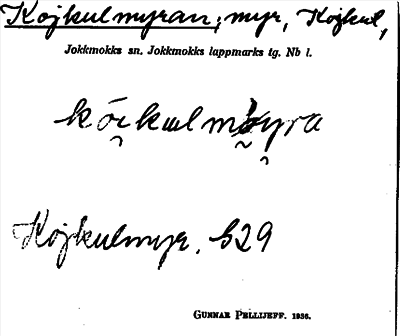 Kojkulmyran, myr, Kojkul,
Jokkmokks sn. Jokkmokks lappmarks tg. Nb l.
Kojkulmyr. b29
GUNNAR PELLIJEFF. 1936.